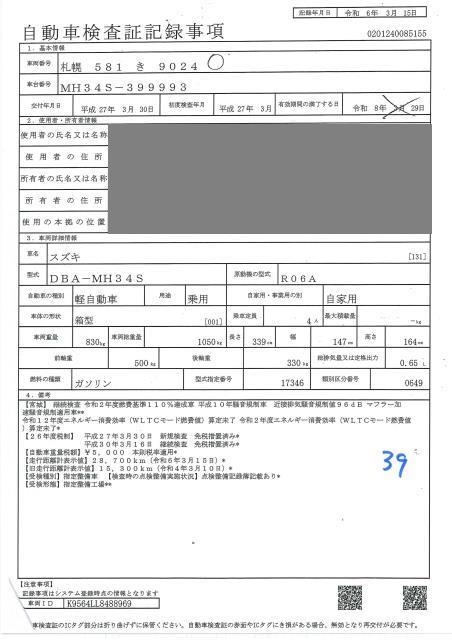 記録年月日 令和 6年 3月 15日
自動車検査証記録事項 0201240085155
1．基本情報
車両番号 札幌 581 き 9024
車台番号 MH34S-399993
交付年月日 平成 27年 3月 30日 初度検査年月 平成 27年 3月 有効期間の満了する日 令和 8年 3月 29日
2．使用者・所有者情報
使用者の氏名又は名称
使用者の住所
所有者の氏名又は名称
所有者の住所
使用の本拠の位置
3．車両詳細情報
車名 スズキ [131]
型式 DBA-MH34S 原動機の型式 R06A
自動車の種別 軽自動車 用途 乗用 自家用・事業用の別 自家用
車体の形状 箱型 [001] 乗車定員 4人 最大積載量 -kg
車両重量 830kg 車両総重量 1050kg 長さ 339cm 幅 147cm 高さ 164cm
前軸重 500kg 後軸重 330kg 総排気量又は定格出力 0.65 L
燃料の種類 ガソリン 型式指定番号 17346 類別区分番号 0649
4．備考
【宮城】 継続検査 令和2年度燃費基準110%達成車 平成10年騒音規制車 近接排気騒音規制値96dB マフラー加
速騒音規制適用車**
令和12年度エネルギー消費効率(WLTCモード燃費値)算定未了 令和2年度エネルギー消費効率(WLTCモード燃費値
)算定未了*
【26年度税制】 平成27年3月30日 新規検査 免税措置済み*
平成30年3月16日 継続検査 免税措置済み*
【自動車重量税額】¥5,000 本則税率適用*
【走行距離計表示値】28,700km(令和6年3月15日)*
【旧走行距離計表示値】15,300km(令和4年3月10日)*
【受検種別】指定整備車 【検査時の点検整備実施状況】点検整備記録簿記載あり*
【受検形態】指定整備工場**
39
【注意事項】
記載事項はシステム登録時点の情報となります
車両ID K9564LL8488969
車検査証のICタグ部分は折り曲げずに保管ください。自動車検査証の券面やICタグにき損がある場合、無効となり再交付が必要です。